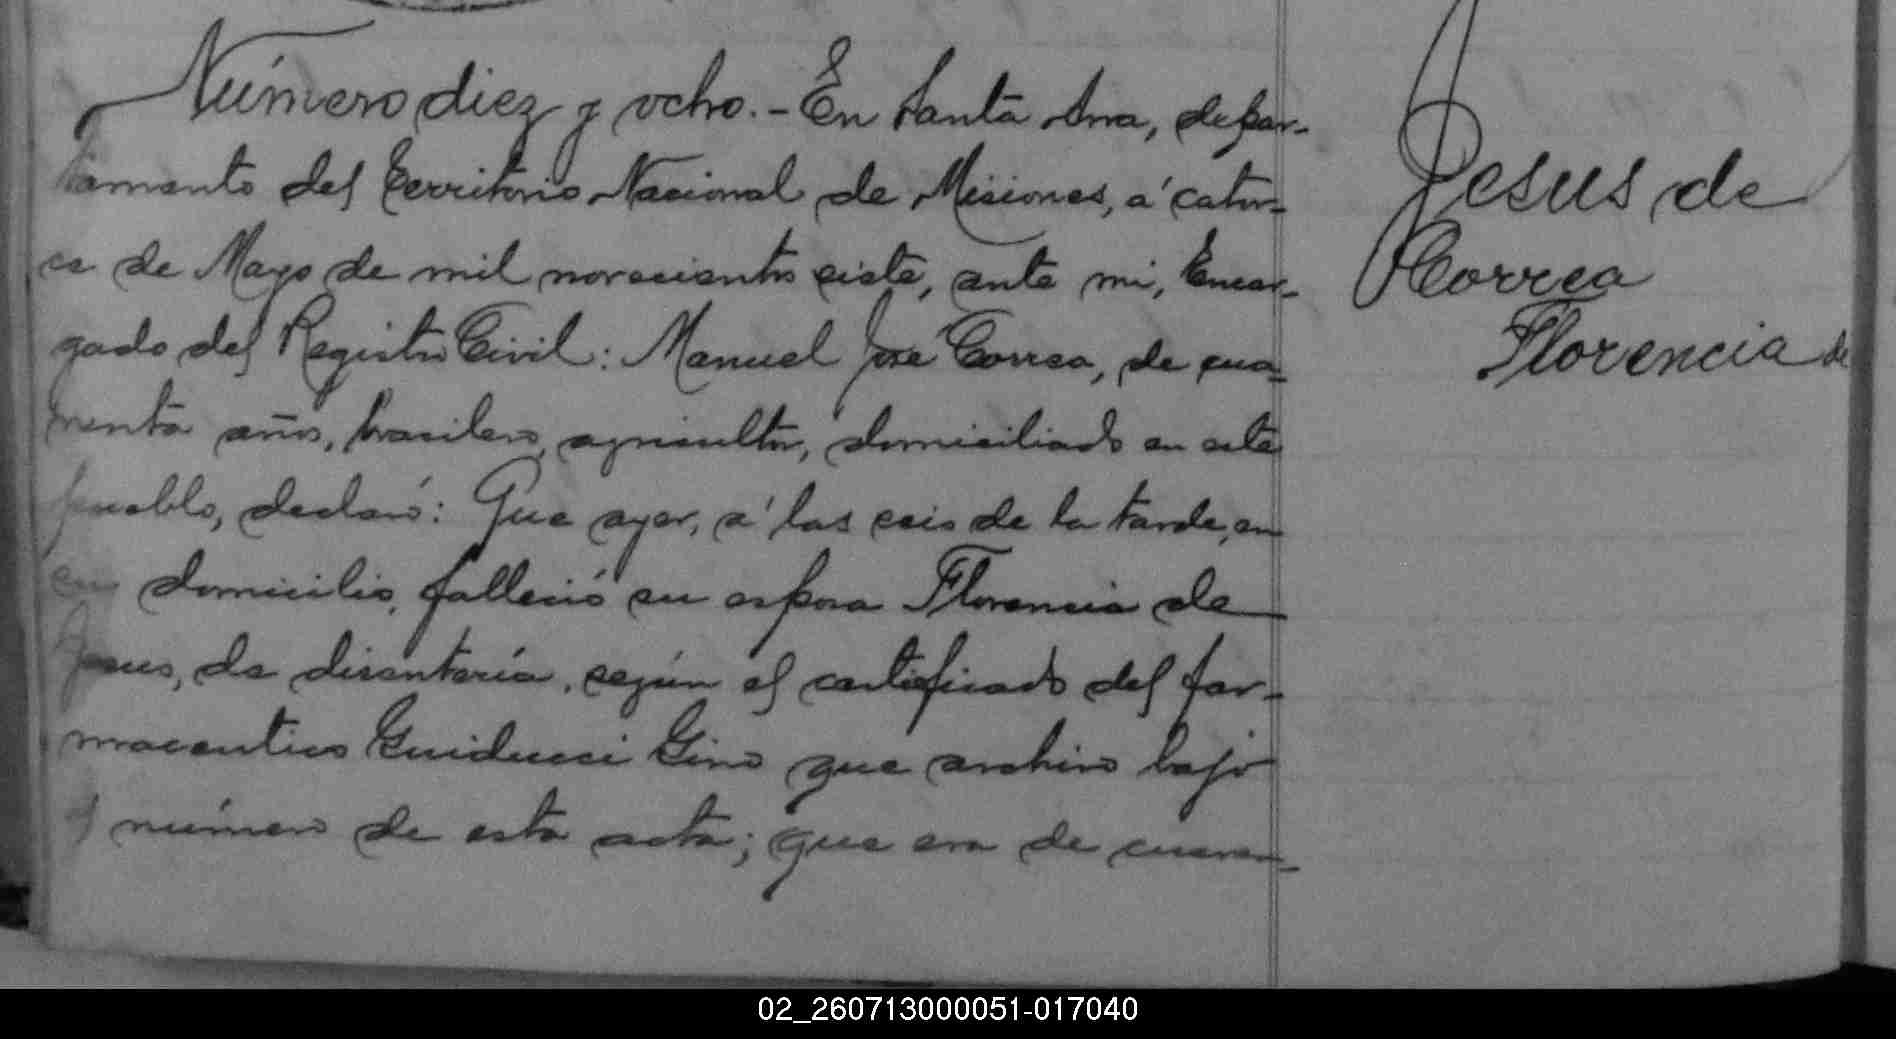 Número diez y ocho. - En Santa Ana, depar-
tamento del Territorio Nacional de Misiones, á cator-
ce de Mayo de mil novecientos siete, ante mi, Encar-
gado del Registro Civil: Manuel José Correa, de cua-
renta años, brasilero, agricultor, domiciliado en este
pueblo, declaró: Que ayer, á las seis de la tarde, en
su domicilio, falleció su esposa Florencia de
Jesus, de disentería, según el certificado del far-
maceutico Guiducci Gino que archivo bajo
el número de esta acta; que era de cuaren-
Jesus de
Correa
Florencia de
02_260713000051-017040